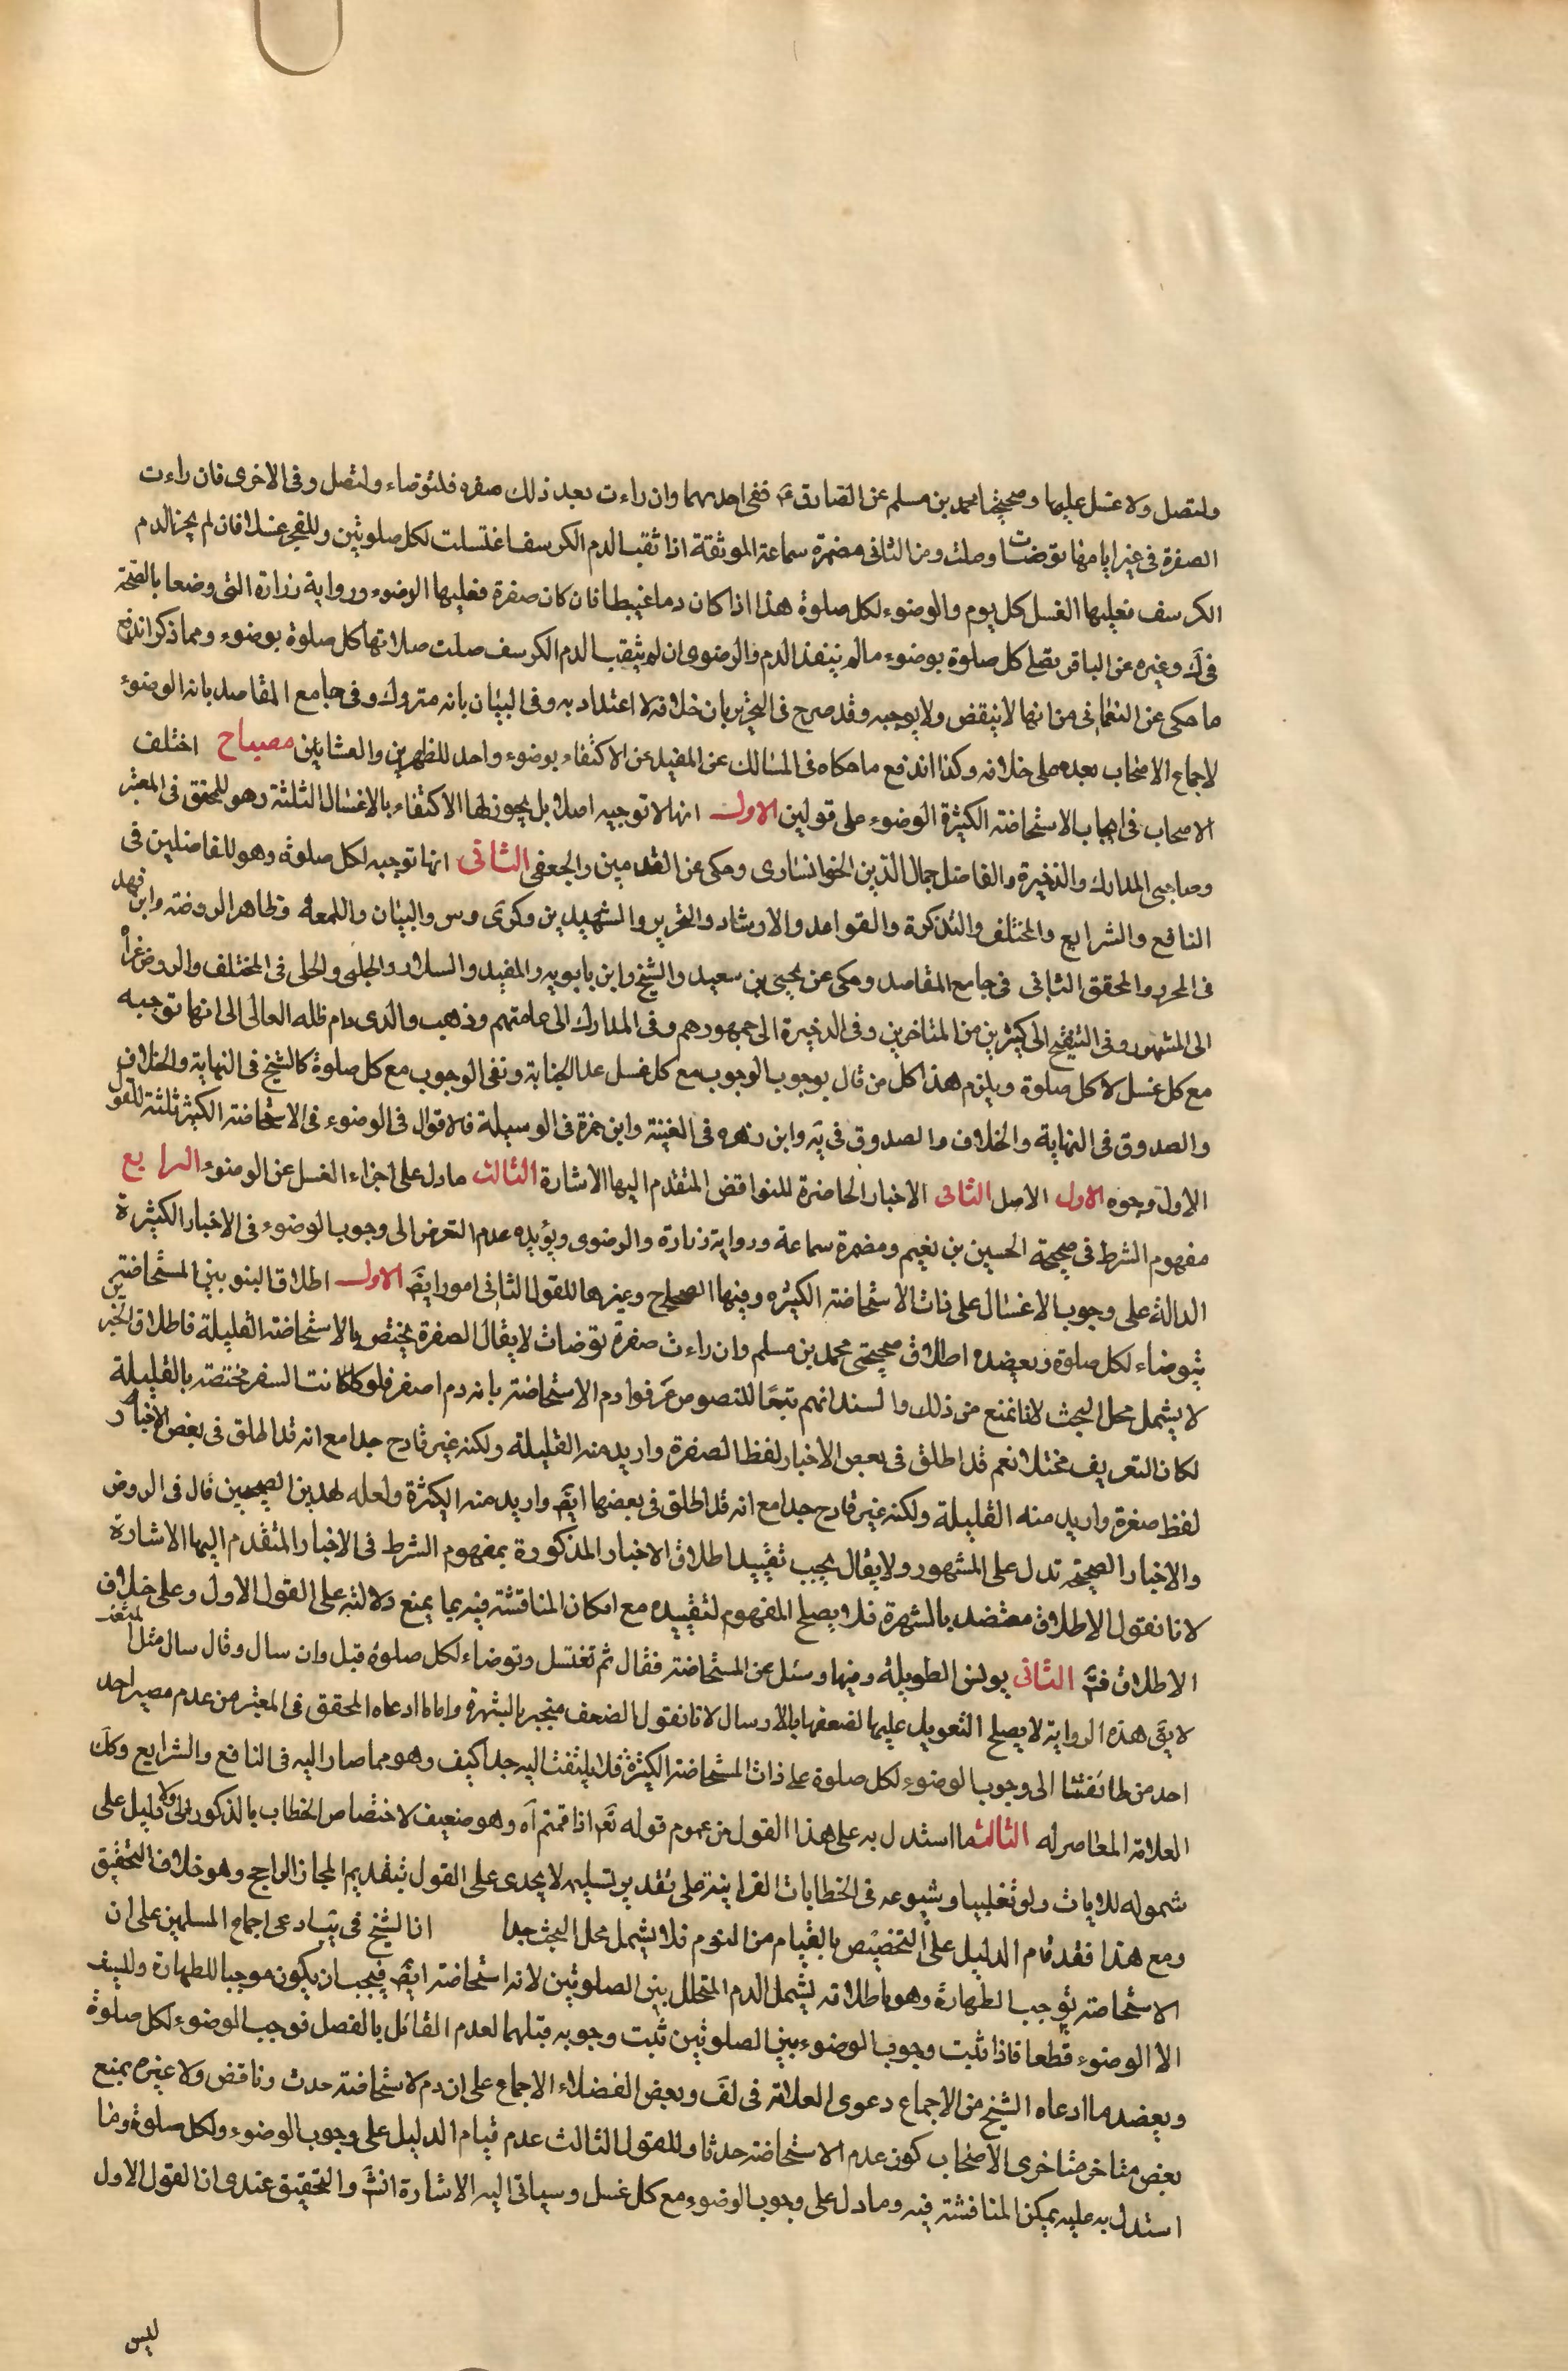 ولتصل ولا غسل عليها وصحيحتا محمد بن مسلم عن الصادق ع ففى احديهما وان راءت بعد ذلك صفره فلتوضاء ولتصل وفى الاخرى فان راءت
الصفرة فى غير ايامها توضات وصلت ومن الثانى مضمرة سماعة الموثقة اذا ثقب الدم الكرسف اغتسلت لكل صلوتين وللفجر غسلا فان لم يجز الدم
الكرسف فعليها الغسل كل يوم والوضوء لكل صلوة هذا اذا كان دما عبيطا فان كان صفرة فعليها الوضوء ورواية زرارة التى وصفها بالصحة
فى ك وغيره عن الباقر تصلى كل صلوة بوضوء ما لم ينفذ الدم والرضوى ان لم يثقب الدم الكرسف صلت صلاتها كل صلوة بوضوء ومما ذكر اندفع
ما حكى عن النعمانى من انها لا ينقض ولا يوجبه وقد صرح فى التحرير بان خلافه لا اعتداد به وفى البيان بانه متروك وفى جامع المقاصد بانه الوضوء
لاجماع الاصحاب بعده على خلافه وكذا اندفع ما حكاه فى المسالك عن المفيد من الاكتفاء بوضوء واحد للظهرين والعشائين مصباح اختلف
الاصحاب فى ايجاب الاستحاضة الكثيرة الوضوء على قولين الاول انها لا توجبه اصلا بل يجوز لها الاكتفاء بالاغسال الثلثة وهو للمحقق فى المعتبر
وصاحبى المدارك والذخيرة والفاضل جمال الدين الخوانسارى وحكى عن القدمين والجعفى الثانى انها توجبه لكل صلوة وهو للفاضلين فى
النافع والشرايع والمختلف والتذكرة والقواعد والارشاد والتحرير والشهيدين وكرى وس والبيان واللمعه وظاهر الروضة وابن فهد
فى المحرر والمحقق الثانى فى جامع المقاصد وحكى عن يحيى بن سعيد والشيخ وابن بابويه والمفيد والسلار والحلبى والحلى فى المختلف والروض عزاه
الى المشهور وفى التنقيح الى كثيرين من المتاخرين وفى الذخيرة الى جمهورهم وفى المدارك الى عامتهم وذهب والدى دام ظله العالى الى انها توجبه
مع كل غسل لا كل صلوة ويلزم هذا كل من قال بوجوب الوجوب مع كل غسل عدا الجنابة ونفى الوجوب مع كل صلوة كالشيخ فى النهاية والخلاف
والصدوق فى النهاية والخلاف والصدوق فى يه وابن زهره فى الغنية وابن حمزة فى الوسيلة فالاقوال فى الوضوء فى الاستحاضة الكثيرة ثلثة للقول
الاول وجوه الاول الاصل الثانى الاخبار الحاضرة للنواقض المتقدم اليها الاشارة الثالث ما دل على اجزاء الغسل عن الوضوء الرابع
مفهوم الشرط فى صحيحة الحسين بن نعيم ومضمرة سماعة ورواية زرارة والرضوى ويؤيده عدم التعرض الى وجوب الوضوء فى الاخبار الكثيرة
الدالة على وجوب الاغسال على ذات الاستحاضة الكثيره وفيها الصحاح وغيرها للقول الثانى امور ايض الاول اطلاق النبويين المستحاضة
تتوضاء لكل صلوة ويعضده اطلاق صحيحتى محمد بن مسلم وان راءت صفرة توضات لا يقال الصفرة يختص بالاستحاضة القليلة فاطلاق الخبرين
لا يشمل محل البحث لانا نمنع من ذلك والسند انهم تبعًا للنصوص عرفوا دم الاستحاضة بانه دم اصفر فلو كانت السفر مختصة بالقليلة
لكان التعريف مختلا نعم قد اطلق فى بعض الاخبار لفظ الصفرة واريد منه القليلة ولكنه غير قادح جدا مع انه قد اطلق فى بعض الاخبار
لفظ صفرة واريد منه القليلة ولكنه غير قادح جدا مع انه قد اطلق فى بعضها ايض واريد منه الكثرة ولعله لهذين الصحيحين قال فى الروض
والاخبار الصحيحة تدل على المشهور ولا يقال يجب تقييد اطلاق الاخبار المذكورة بمفهوم الشرط فى الاخبار المتقدم اليها الاشارة
لانا نقول الاطلاق معتضد بالشهرة فلا يصلح المفهوم لتقييده مع امكان المناقشة فيه بما يمنع دلالته على القول الاول وعلى خلاف
الاطلاق فت الثانى يونس الطويلة وفيها وسئل عن المستحاضة فقال ثم تغتسل وتوضاء لكل صلوة قيل وان سال وقال سال مثل المثعب
لا يق هذه الرواية لا يصلح التعويل عليها لضعفها بالارسال لانا نقول الضعف منجبر بالشهرة واما ما ادعاه المحقق فى المعتبر من عدم مصير احد
احد من طائفتنا الى وجوب الوضوء لكل صلوة على ذات المستحاضة الكثيرة فلا يلتفت اليه جدا كيف وهو مما صار اليه فى النافع والشرايع وكك
العلامة المعاصر له الثالث ما استدل به على هذا القول من عموم قوله تع اذا قمتم اه وهو ضعيف لاختصاص الخطاب بالذكور ولا دليل على
شموله للاناث ولو تغليبا وشيوعه فى الخطابات القرانية على تقدير تسليمه لا يجدى على القول بتقديم المجاز الراجح وهو خلاف التحقيق
ومع هذا فقد قام الدليل على التخصيص بالقيام من النوم فلا يشمل محل البحث جدا ان الشيخ فى يب ادعى اجماع المسلمين على ان
الاستحاضة توجب الطهارة وهو باطلاقه يشمل الدم المتخلل بين الصلوتين لانه استحاضة ايض فيجب ان يكون موجبا للطهارة وليست
الا الوضوء قطعا فاذا ثبت وجوب الوضوء بين الصلوتين ثبت وجوبه قبلهما لعدم القائل بالفصل فوجب الوضوء لكل صلوة
ويعضد ما ادعاه الشيخ من الاجماع دعوى العلامة فى لف وبعض الفضلاء الاجماع على ان دم الاستحاضة حدث وناقض ولا غيره يمنع
بعض متاخر متاخرى الاصحاب كون عدم الاستحاضة حدثا وللقول الثالث عدم قيام الدليل على وجوب الوضوء ولكل صلوة وما
استدل به عليه يمكن المناقشة فيه وما دل على وجوب الوضوء مع كل غسل وسياتى اليه الاشارة انش والتحقيق عندى ان القول الاول
ليس